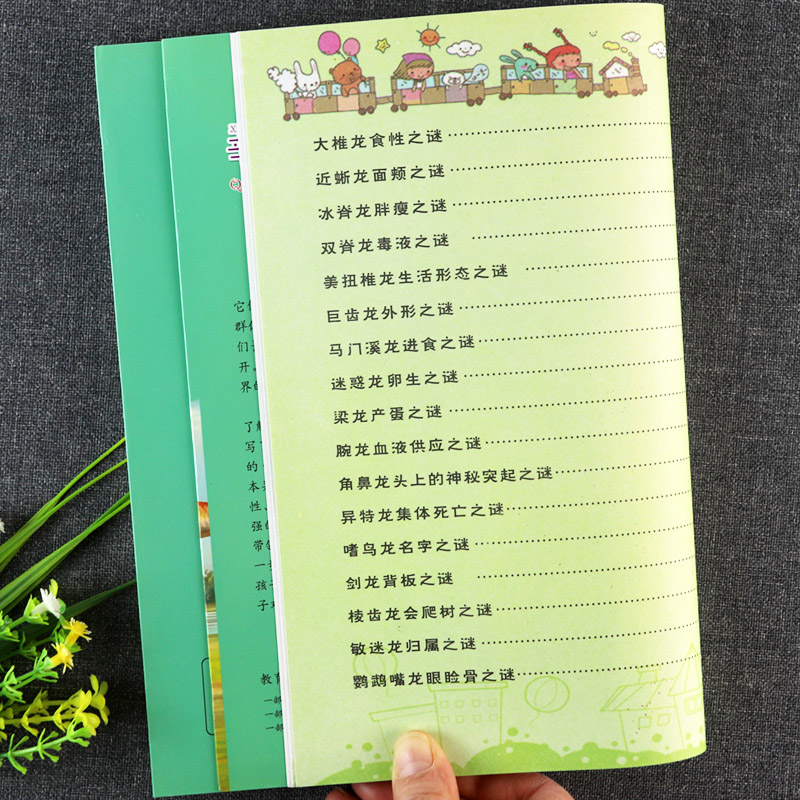 大椎龙食性之谜
近蜥龙面颊之谜
冰脊龙胖瘦之谜
双脊龙毒液之谜
美扭椎龙生活形态之谜
巨齿龙外形之谜
马门溪龙进食之谜
迷惑龙卵生之谜
梁龙产蛋之谜
腕龙血液供应之谜
角鼻龙头上的神秘突起之谜
异特龙集体死亡之谜
嗜鸟龙名字之谜
剑龙背板之谜
棱齿龙会爬树之谜
敏迷龙归属之谜
鹦鹉嘴龙眼睑骨之谜
它
群
们
开
界的
了解
写
的
本
性、
强的
带
一
孩
子
教育
一部
一部
一部